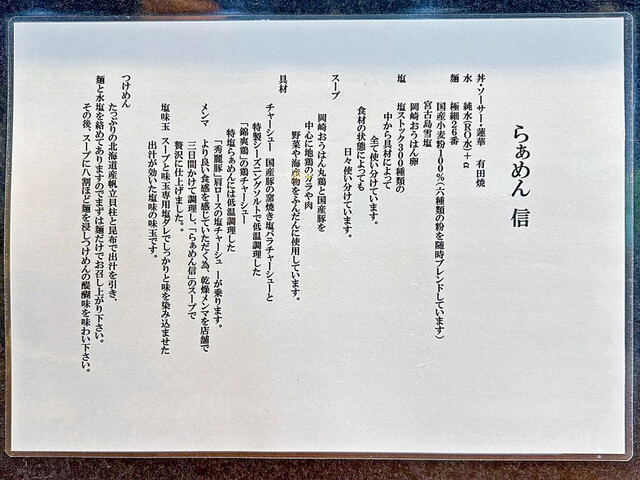 らぁめん 信
丼・ソーサー・蓮華　有田焼
水　純水(RO水)+α
麺　極細26番
国産小麦粉100%(六種類の粉を随時ブレンドしています)
宮古島雪塩
岡崎おうはん卵
塩　塩ストック300種類の
中から具材によって
全て使い分けています。
食材の状態によっても
日々使い分けています。
スープ
岡崎おうはん丸鶏と国産豚を
中心に地鶏のガラや肉
野菜や海産物をふんだんに使用しています。
具材
チャーシュー　国産豚の窯焼き塩バラチャーシューと
特製シーズニングソルトで低温調理した
「錦爽鶏」の鶏チャーシュー
特塩らぁめんには低温調理した
「秀麗豚」肩ロースの塩チャーシューが乗ります。
メンマ　より良い食感を感じていただく為、乾燥メンマを店舗で
三日間かけて調理し、「らぁめん信」のスープで
贅沢に仕上げました。。
塩味玉　スープと味玉専用塩ダレでしっかりと味を染み込ませた
出汁が効いた塩味の味玉です。
つけめん
たっぷりの北海道産帆立貝柱と昆布で出汁を引き、
麺と水塩を絡めてありますのでまずは麺だけでお召し上がり下さい。
その後、スープに八割ほど麺を浸しつけめんの醍醐味を味わい下さい。